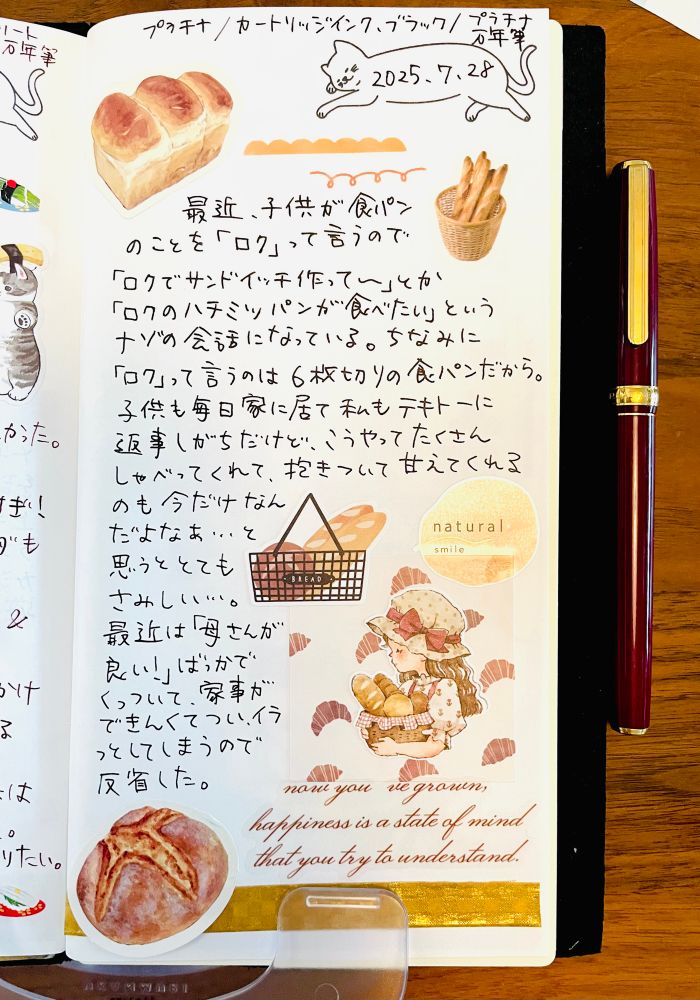 リート
万年筆
プラチナ/カートリッジインク、ブラック/プラチナ
万年筆
2025.7.28
最近、子供が食パン
のことを「ロク」って言うので
「ロクでサンドイッチ作って〜」とか
「ロクのハチミツパンが食べたい」という
ナゾの会話になっている。ちなみに
「ロク」って言うのは6枚切りの食パンだから。
子供も毎日家に居て私もテキトーに
返事しがちだけど、こうやってたくさん
しゃべってくれて、抱きついて甘えてくれる
のも今だけなん
だよなあ…と
思うととても
さみしい…。
最近は「母さんが
良い!」ばっかで
くっついて、家事が
できんくてつい、イラ
っとしてしまうので
反省した。
BREAD
natural
smile
now you 've grown,
happiness is a state of mind
that you try to understand.
かった。
すぎ!
も
&
かけ
る
は
りたい。